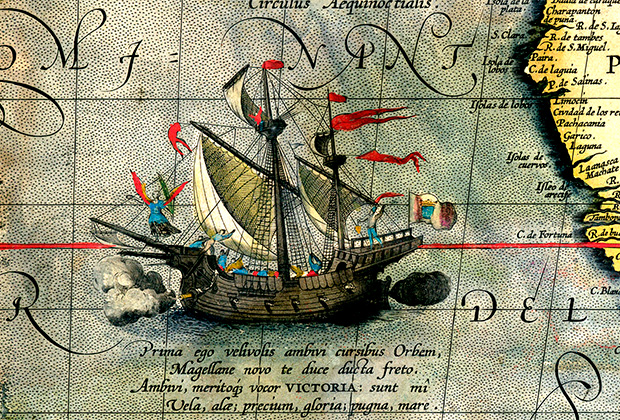 Circulus Aequinoctialis.
M A - NANT
Isola de la
plata
Charapanton
de puna
S. Clara.
R. de tambes
R. de S. Miguel
Isola de
lobos
Paita.
C. de laguia
P. de Salinas.
P
Isolas de lobos
Limocin
Cividad de los re
Pachacania
Garico.
Laguna
Isolas de
cuervos
C. de Fortuna
R. de bu
C. Blan
R DEL
Prima ego velivolis ambivi cursibus Orbem,
Magellane novo te duce ducta freto.
Ambivi, meritoq̃ vocor VICTORIA: sunt mî
Vela, alæ; precium, gloria; pugna, mare.